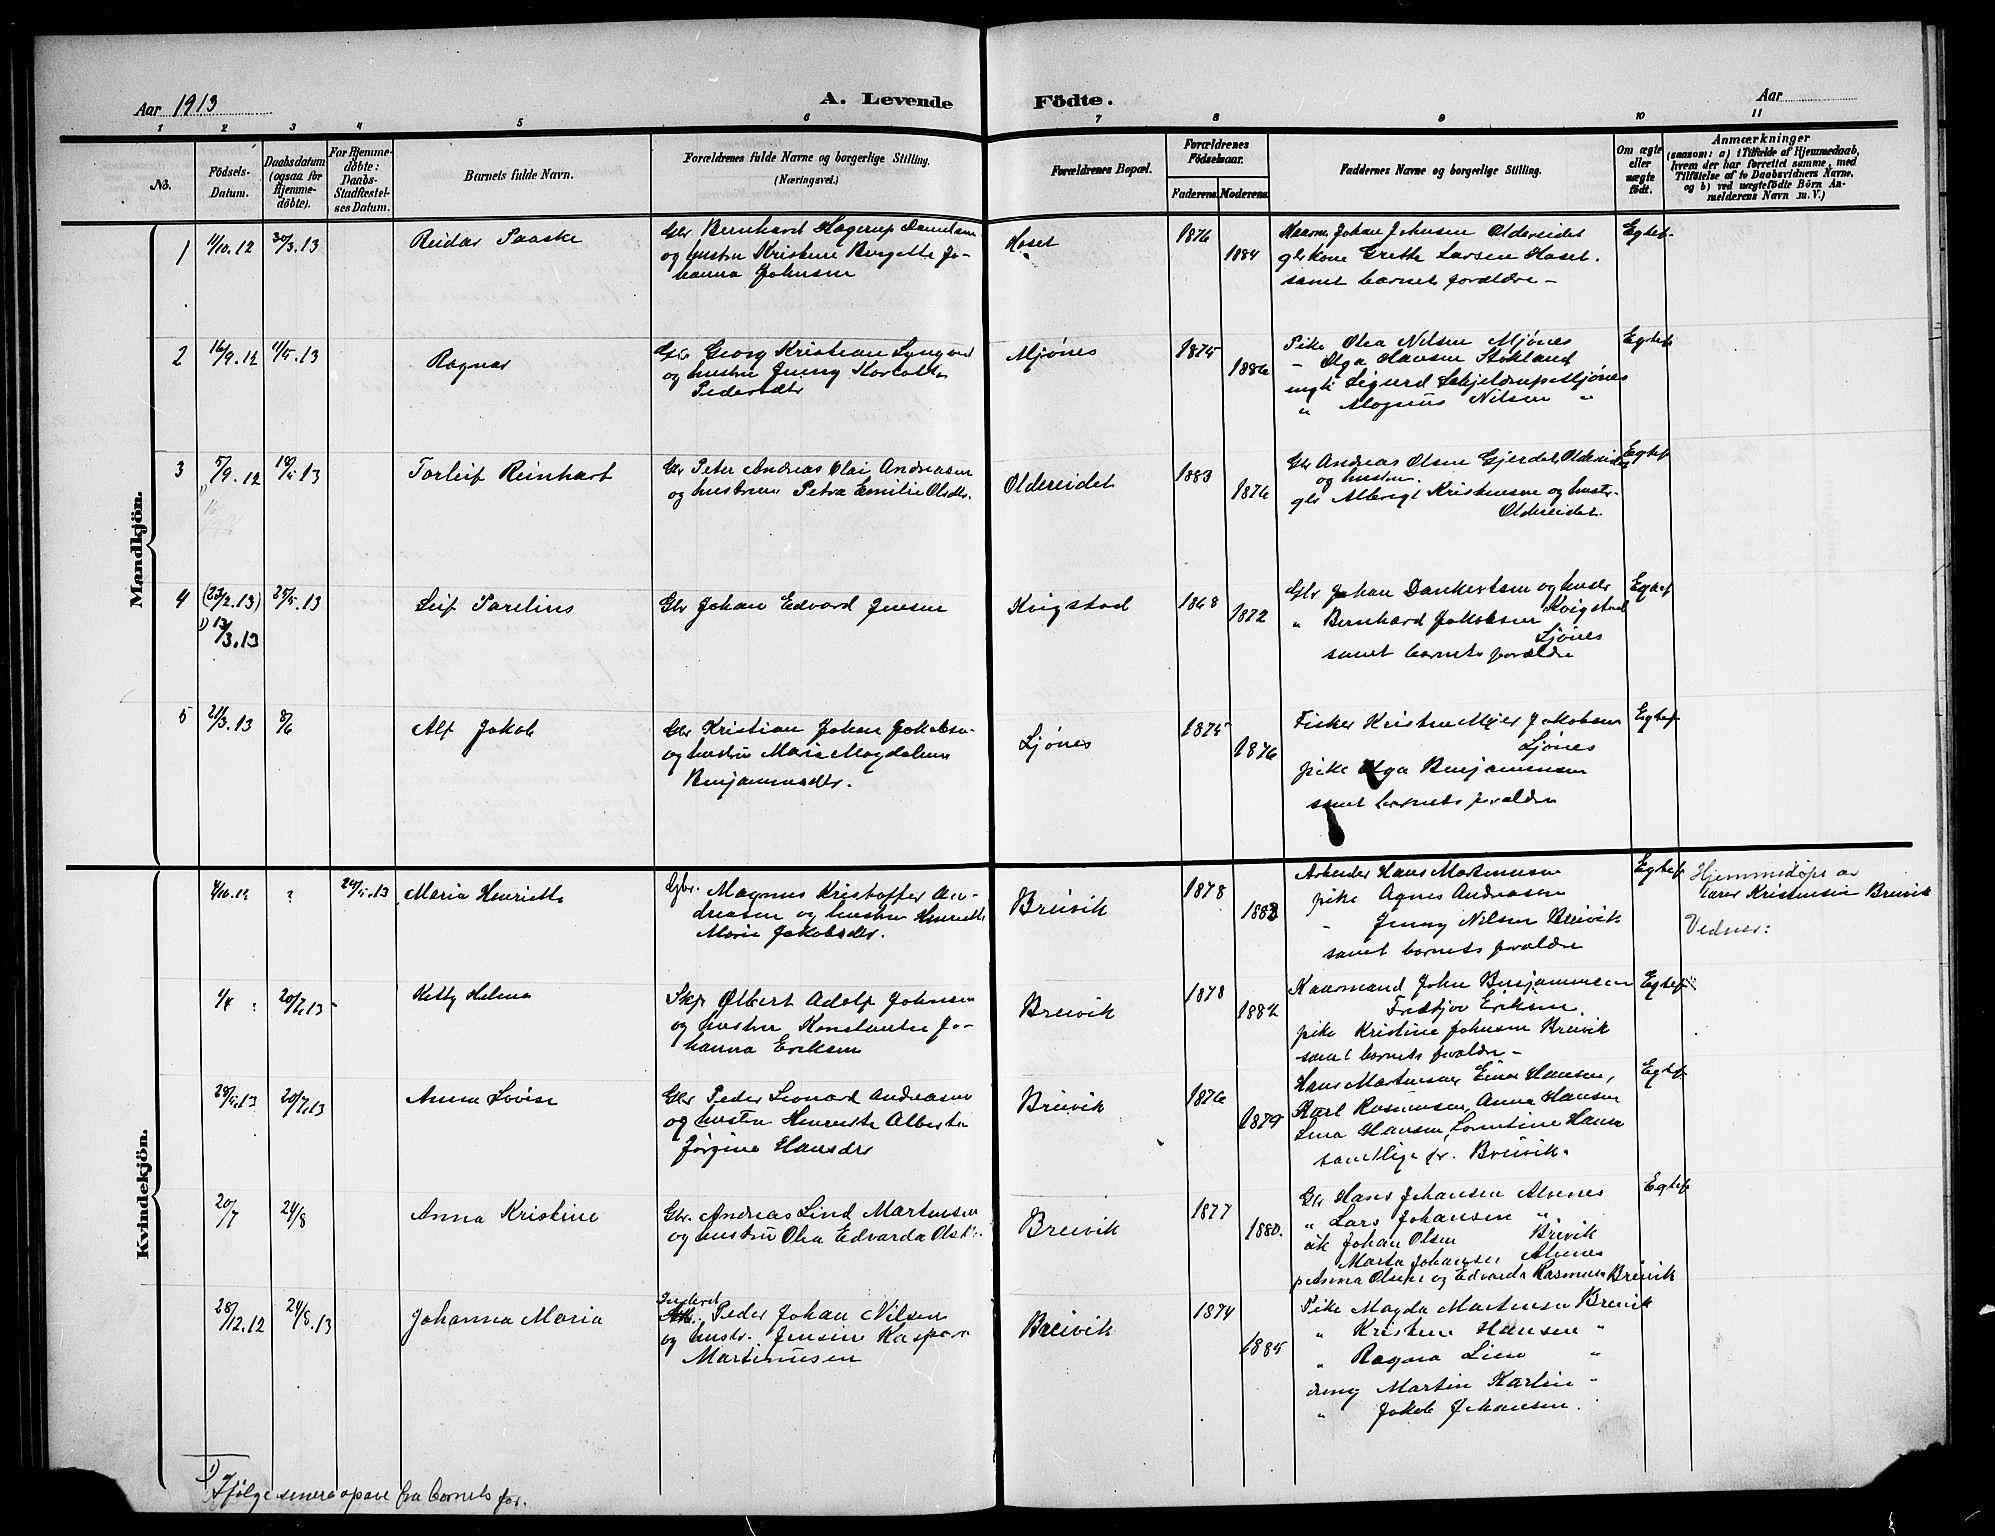 Aar 1913
A. Levende
Födte.
Aar
1 2 3 4 5 6 7 8 9 10 11
No.
Födsels-
Datum.
Daabsdatum
(ogsaa for
Hjemme-
döbte).
For Hjemme-
döbte:
Daabs-
Stadfæstel-
ses Datum.
Barnets fulde Navn.
Forældrenes fulde Navne og borgerlige Stilling.
(Næringsvei.)
Forældrenes Bopæl.
Forældrenes
Födselsaar.
Faderens. Moderens.
Faddernes Navne og borgerlige Stilling.
Om ægte
eller
uægte
födt.
Anmærkninger
(saasom: a) i Tilfælde af Hjemmedaab,
hvem der har forrettet samme, med
Tilföielse af to Daabsvidners Navne,
og b) ved uægtefödte Börn An-
melderens Navn m. V.)
Mandkjön.
1 30/3.13 Reidar Paaske
Gbr Bernhard Hagerup
og hustru Kristine Bergette Jo-
hanna Johnsen
Hoset
1876
1884
Johan Johnsen Oldereidet
gbkone Grethe Larsen Hoset.
samt barnets forældre -
Egtef
2 16/9.12 1/5.13 Ragnar
Gbr Georg Kristian
og hustru Jenny
Pedersdtr
Mjønes
1875
1886
Pike Olea Nilsen Mjønes
- Olga Hansen Stokland
ungk Sigurd Schjeldrup Mjønes
" Magnus Nilsen "
Egtef
3 5/9.12 Torleif Reinhart
Gbr Peter Andreas Olai Andreasen
og hustru Petra Emilie Olsdtr.
Oldereidet
1883
1876
Gbr Andreas Olsen Gjerdet, Oldereidet
og hustru.
gbr Albrigt Kristensen og hustr-
Oldereidet.
Egtef
4 (23/2.13) 25/5.13 Leif Parelius
1) 13/3.13
Gbr Johan Edvard Jensen
Kvigstad
1868
1872
Gbr Johan Dankertsen og hustr
Kvigstad
" Bernhard Jakobsen
Ljønes
samt barnets forældre
Egtef
5 21/3.13 8/6 Alf Jakob
Gbr Kristian Johan Jakobsen
og hustru Maria Magdalena
Benjaminsdtr.
Ljønes
1875
1876
Fisker Kristen Mejer Jakobsen
Ljønes
pike Olga Benjaminsen
samt barnets forældre
Egtef
Kvindekjön.
? Maria Henriette
Gbr. Magnus Kristoffer An-
dreasen og hustru Henriette
Marie Jakobsdtr.
Breivik
1878
1882
Arbeider Hans Martinusen
pike Agnes Andreasen
- Jenny Nilsen Breivik
samt barnets forældre
Egtef
Hjemmedøpt av
lærer Kristensen Breivik
Vedner:
1/4 20/7.13 Ketty Helena
Skp Olbert Adolf Johnsen
og hustru Konstantse Jo-
hanna Eriksen
Breivik
1878
1882
Kaarmand John Benjaminsen
Fridtjov Eriksen.
pike Kristine Johnsen Breivik
samt barnets forældre -
Egtef
20/7.13 Anna Lovise
Gbr Peder Leonard Andreasen
og hustru Henriette Alberta
Jørgine Hansdtr
Breivik
1876
1879
Hans Martinusen Einar Hansen,
Karl Rasmussen, Anna Hansen
Lina Hansen, Lorentine Hansen
samtlige fr. Breivik.
Egtef
20/7 24/8 Anna Kristine
Gbr. Andreas Lind Martinsen
og hustru Olea Edvarda Olsdtr.
Breivik
1877
1880.
Gbr Hans Johansen Alvenes
" Lars Johansen "
Johan Olsen Breivik
Marta Johansen Alvenes
p Anna Olsen og Edvarda Rasmussen Breivik
Egtef
28/12.12 24/8.13 Johanna Maria
Inderst
Peder Johan Nilsen
og hustr. Jensine Kaspara
Martinusen
Breivik
1874
1885
Pike Magda Martinsen Breivik
" Kristine Hansen "
" Ragna Lind "
dreng Martin Karlsen "
" Jakob Johansen.
1) Ifølge senere opgave fra barnets far.